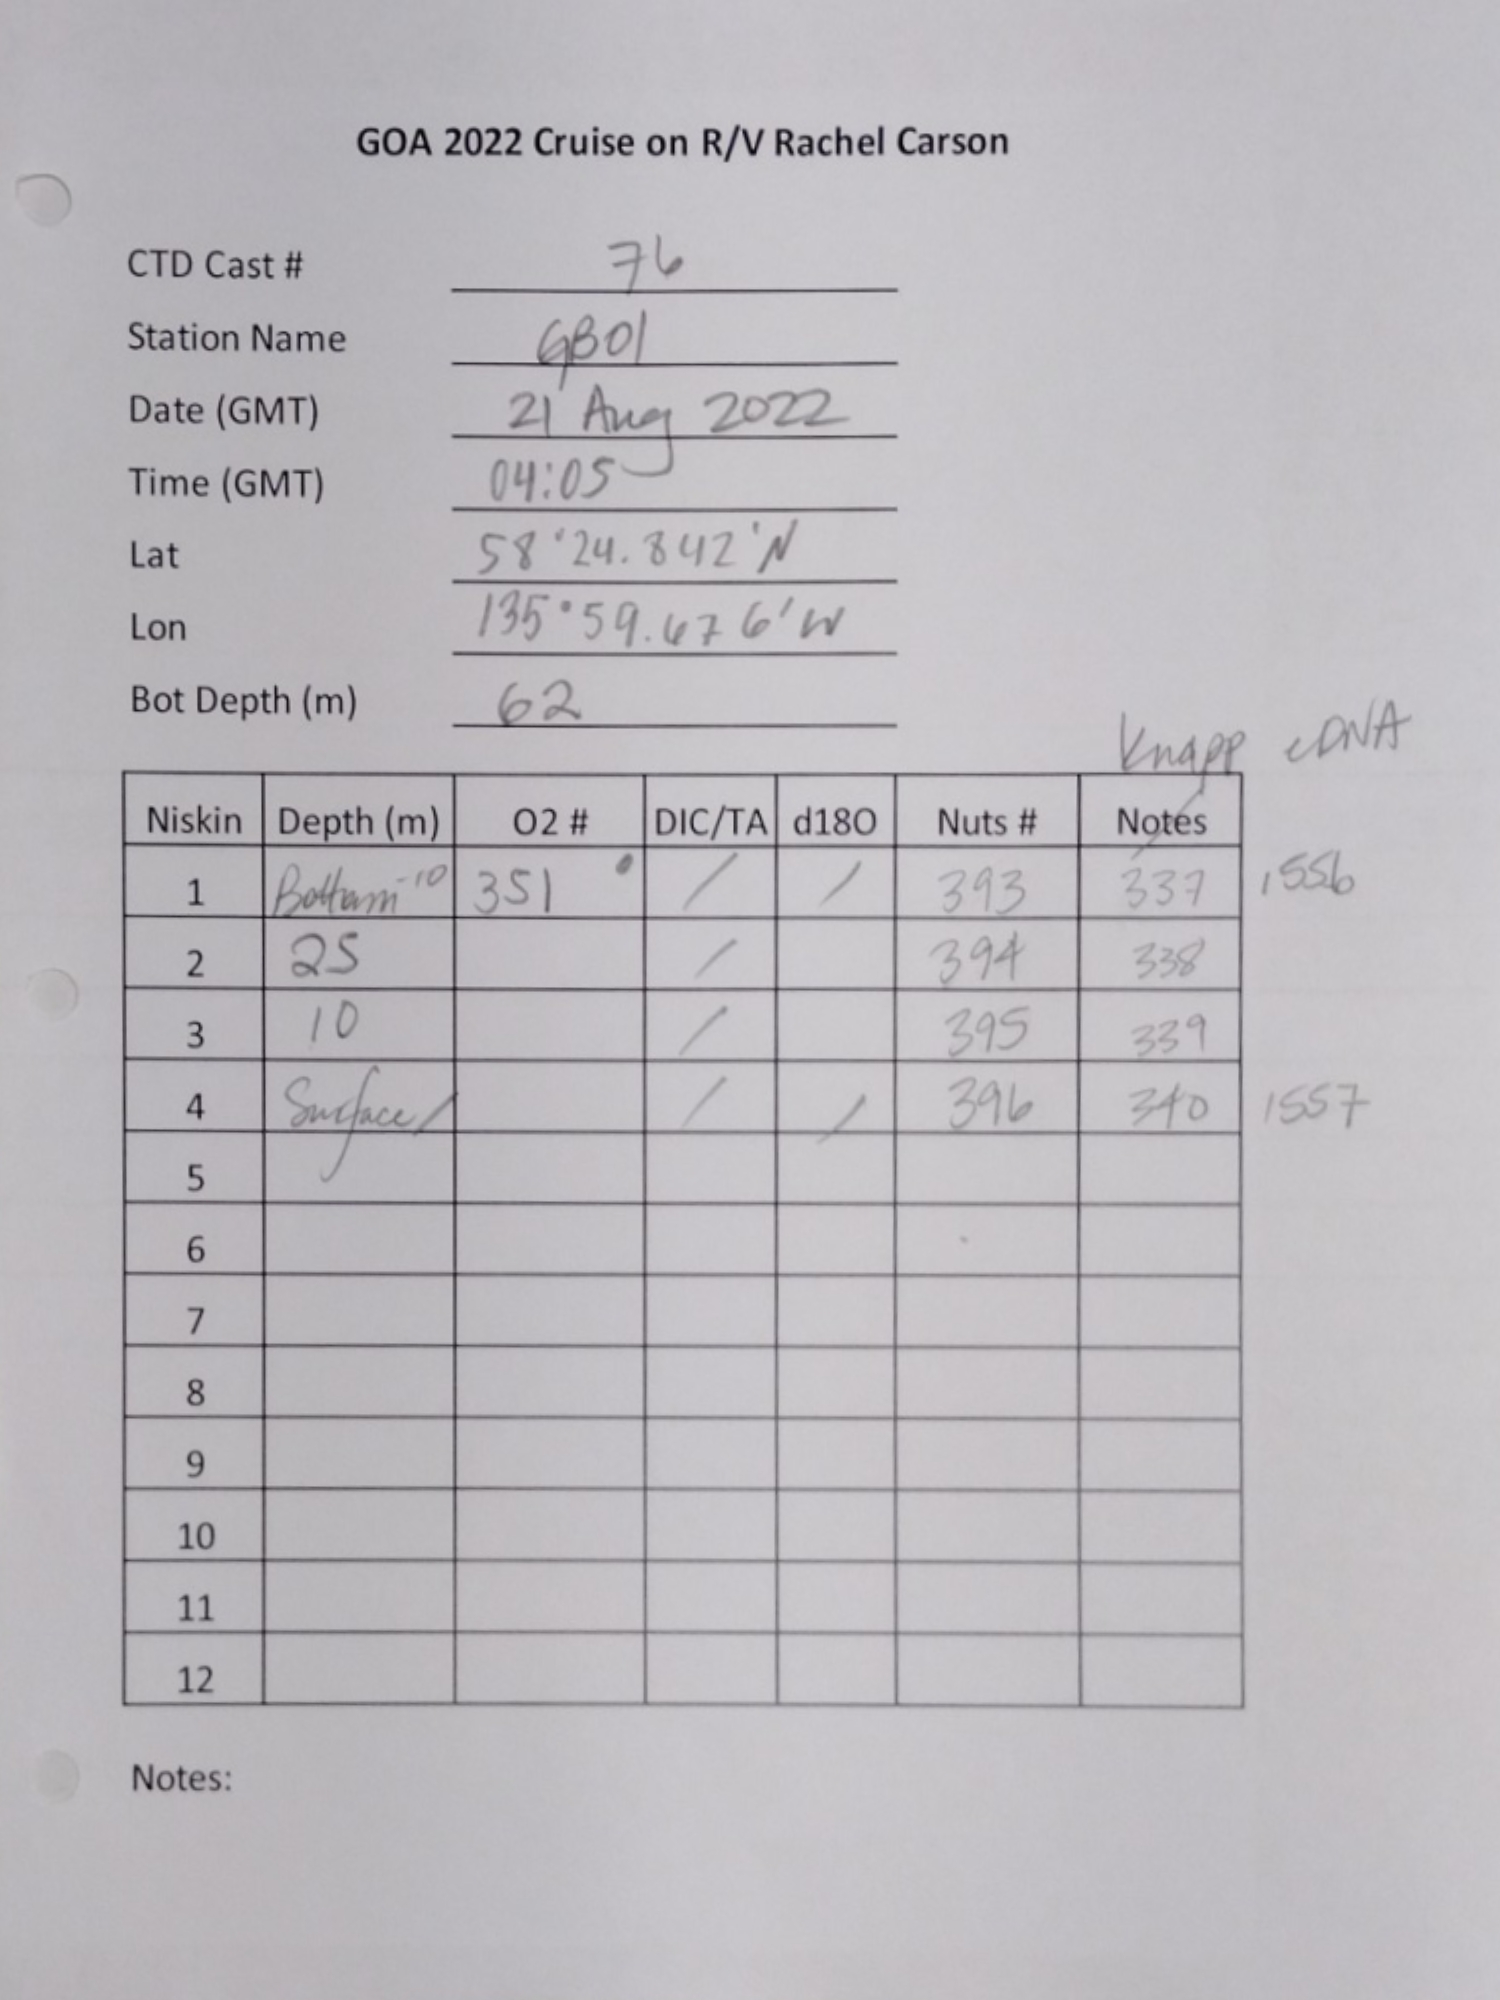 GOA 2022 Cruise on R/V Rachel Carson
CTD Cast # 76
Station Name GB01
Date (GMT) 21 Aug 2022
Time (GMT) 04:05
Lat 58°24.842'N
Lon 135°59.676'W
Bot Depth (m) 62
Knapp eDNA
Niskin Depth (m) O2 # DIC/TA d18O Nuts # Notes
1 Bottom-10 351 / / 393 337 1556
2 25 / 394 338
3 10 / 395 339
4 Surface / / / 396 340 1557
5
6
7
8
9
10
11
12
Notes: